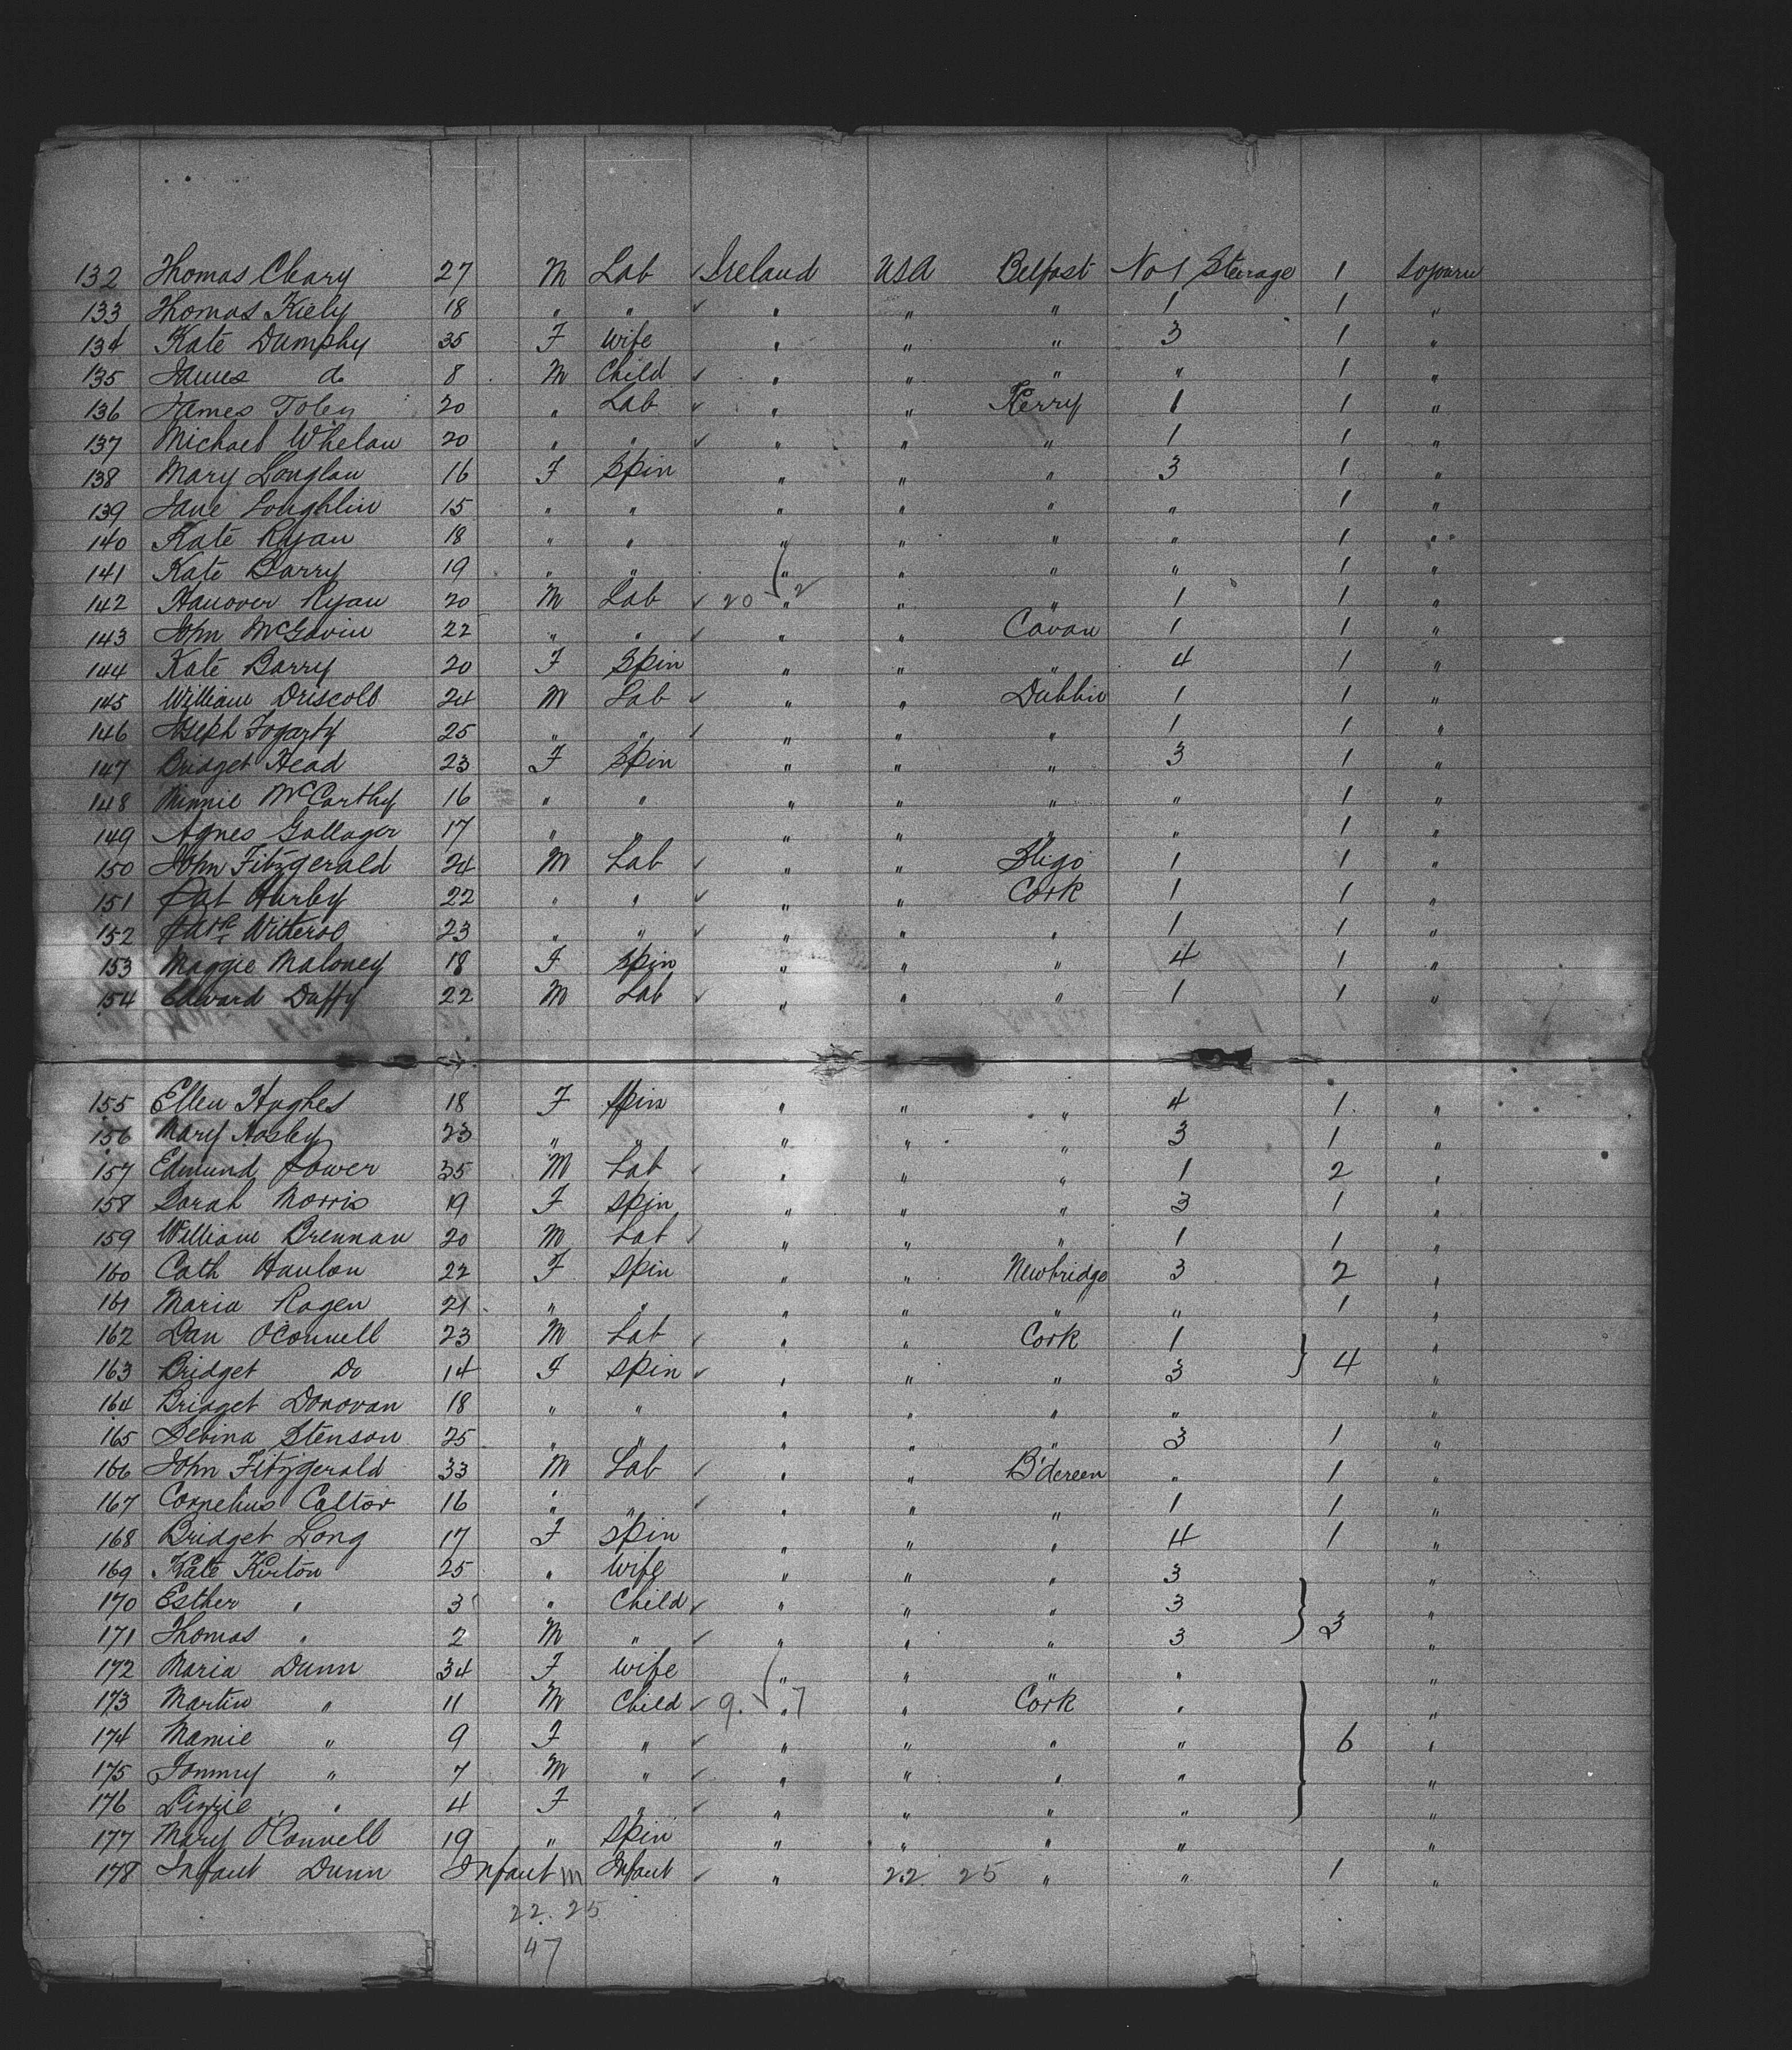 132 Thomas Cleary 27 M Lab ✓ Ireland USA Belfast No 1 Steerage 1 Sojourn
133 Thomas Kiely 18 " " ✓ " " " 1 1 "
134 Kate Dumphy 35 F Wife " " " 3 1 "
135 James do 8 M Child ✓ " " " " 1 "
136 James Toley 20 " Lab ✓ " " Kerry 1 1 "
137 Michael Whelan 20 " " ✓ " " " 1 1 "
138 Mary Longlan 16 F Spin " " " 3 1 "
139 Jane Loughlin 15 " " " " " " 1 "
140 Kate Ryan 18 " " " " " " 1 "
141 Kate Barry 19 " " " " " " 1 "
142 Hanover Ryan 20 M Lab ✓ 20 " 2 " " 1 1 "
143 John McGavin 22 " " ✓ " " Cavan 1 1 "
144 Kate Barry 20 F Spin " " " 4 1 "
145 William Driscoll 24 M Lab ✓ " " Dublin 1 1 "
146 Joseph Fogarty 25 " " ✓ " " " 1 1 "
147 Bridget Head 23 F Spin " " " 3 1 "
148 Minnie McCarthy 16 " " " " " " 1 "
149 Agnes Gallager 17 " " " " " " 1 "
150 John Fitzgerald 24 M Lab ✓ " " Sligo 1 1 "
151 Pat Hurley 22 " " ✓ " " Cork 1 1 "
152 Patk 23 " " ✓ " " " 1 1 "
153 Maggie Maloney 18 F Spin " " " 4 1 "
154 Edward Duffy 22 M Lab ✓ " " " 1 1 "
155 Ellen Hughes 18 F Spin " " " 4 1 "
156 Mary 23 " " " " " 3 1 "
157 Edmund Power 35 M Lab ✓ " " " 1 2 "
158 Sarah Morris 19 F Spin " " " 3 1 "
159 William Brennan 20 M Lab ✓ " " " 1 1 "
160 Cath Hanlon 22 F Spin " " Newbridge 3 2 "
161 Maria Ragen 21 " " " " " " 1 "
162 Dan O'Connell 23 M Lab ✓ " " Cork 1 "
163 Bridget Do 14 F Spin ✓ " " " 3 4 "
164 Bridget Donovan 18 " " " " " " "
165 Stenson 25 " " " " " 3 1 "
166 John Fitzgerald 33 M Lab ✓ " " B'dereen " 1 "
167 Cornelius Caltor 16 " " ✓ " " " 1 1 "
168 Bridget Long 17 F Spin " " " 4 1 "
169 Kate Kirton 25 " Wife " " " 3 "
170 Esther " 3 " Child ✓ " " " 3 "
171 Thomas " 2 M " ✓ " " " 3 3 "
172 Maria Dunn 34 F Wife " " " " "
173 Martin " 11 M Child ✓ 9 " 7 " Cork " "
174 Mamie " 9 F " ✓ " " " " 6 "
175 Tommy " 7 M " ✓ " " " " "
176 Lizzie " 4 F " ✓ " " " " "
177 Mary O'Connell 19 " Spin " " " " "
178 Infant Dunn Infant M Infant ✓ " 22. 25 " " 1 "
22. 25
47